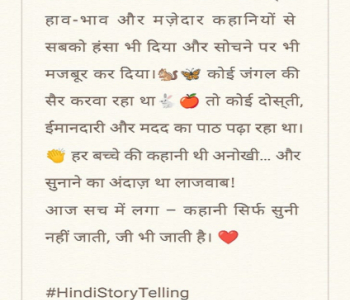 हाव-भाव और मज़ेदार कहानियों से
सबको हंसा भी दिया और सोचने पर भी
मजबूर कर दिया।🐿️🦋 कोई जंगल की
सैर करवा रहा था🐇 🍎 तो कोई दोस्ती,
ईमानदारी और मदद का पाठ पढ़ा रहा था।
👏 हर बच्चे की कहानी थी अनोखी... और
सुनाने का अंदाज़ था लाजवाब!
आज सच में लगा – कहानी सिर्फ सुनी
नहीं जाती, जी भी जाती है। ❤️
#HindiStoryTelling